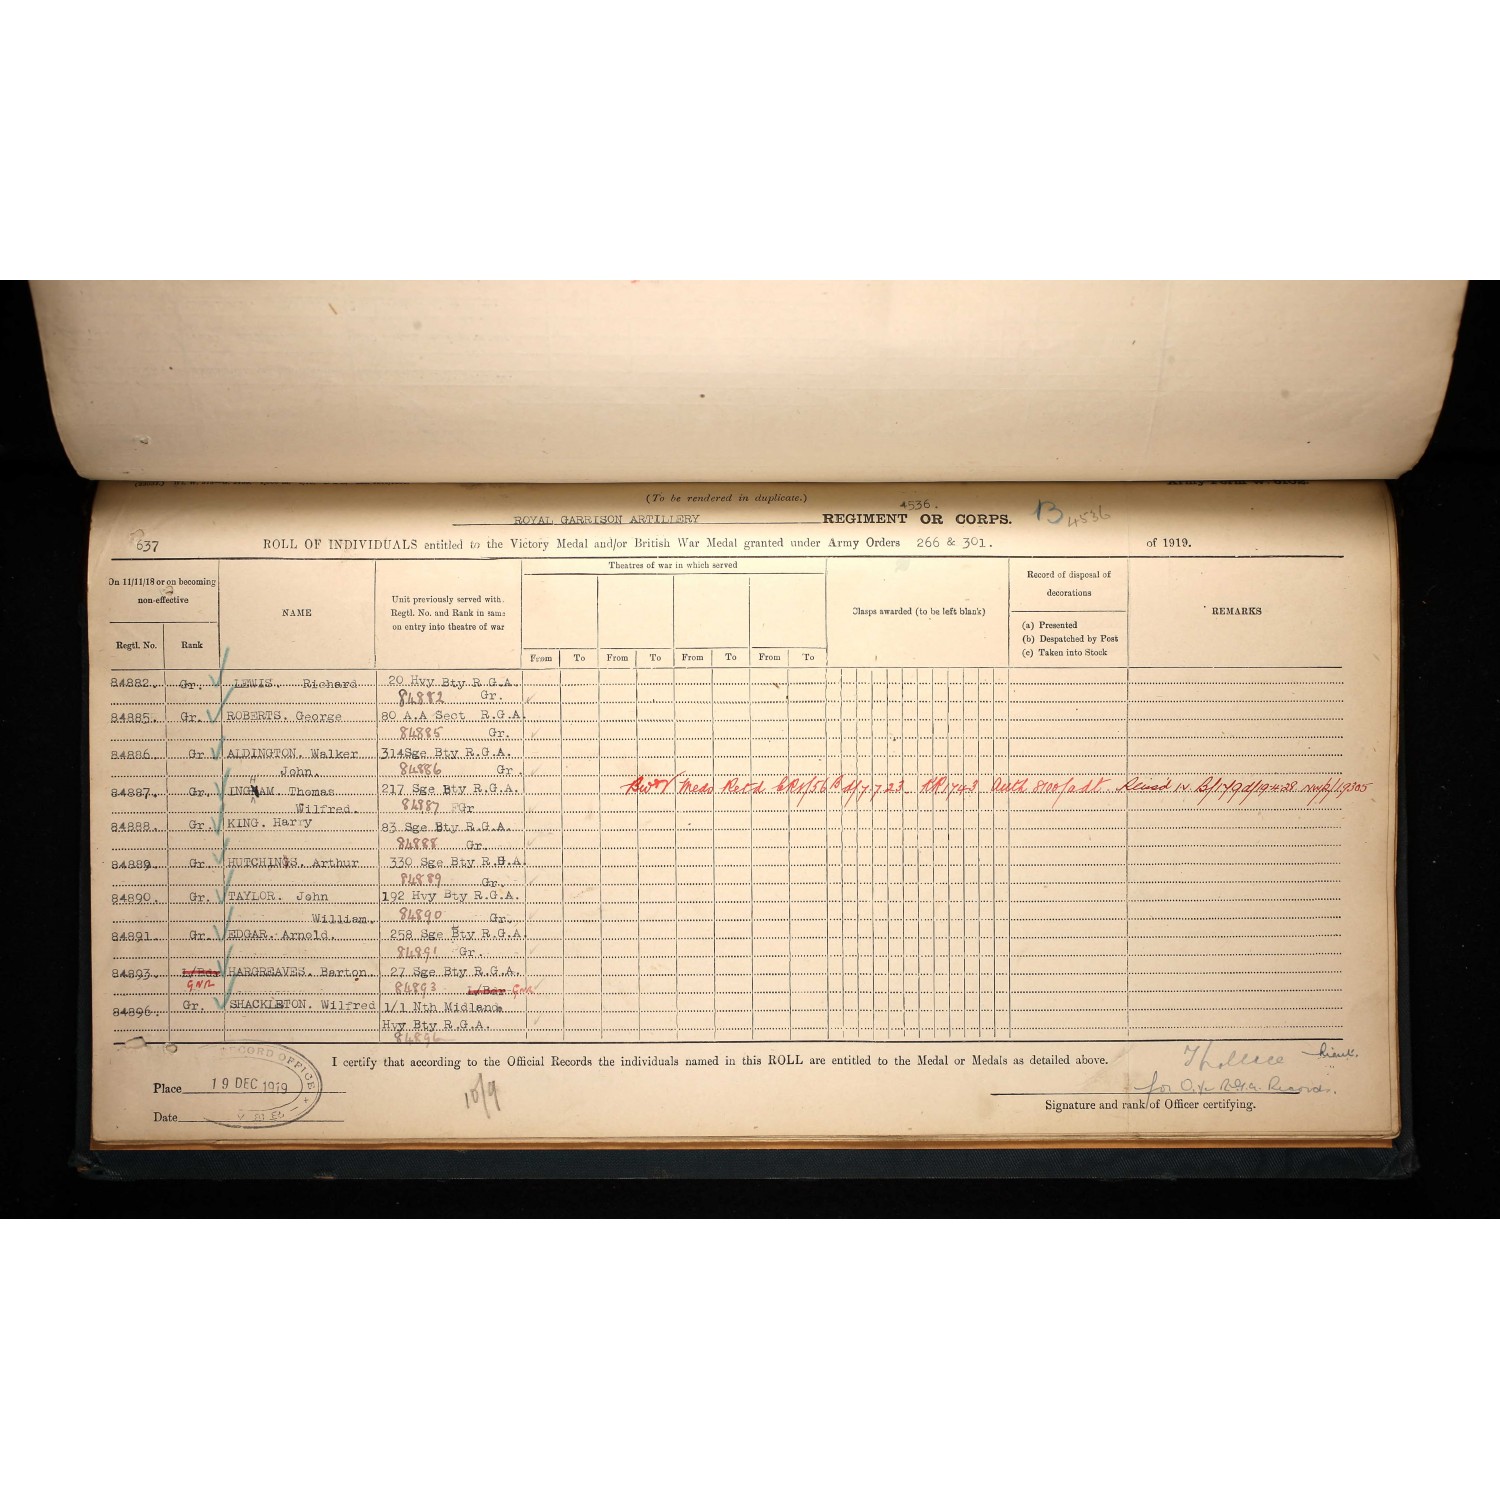 (To be rendered in duplicate.)
4536.
ROYAL GARRISON ARTILLERY REGIMENT OR CORPS. B 4536
637 ROLL OF INDIVIDUALS entitled to the Victory Medal and/or British War Medal granted under Army Orders 266 & 301. of 1919.
On 11/11/18 or on becoming non-effective
Regtl. No.
Rank
NAME
Unit previously served with. Regtl. No. and Rank in same on entry into theatre of war
Theatres of war in which served
From To From To From To From To
Clasps awarded (to be left blank)
Record of disposal of decorations
(a) Presented
(b) Despatched by Post
(c) Taken into Stock
REMARKS
84882. Gr. LEWIS. Richard 20 Hvy Bty R.G.A.
84882 Gr.
84885. Gr. ROBERTS. George 80 A.A Sect R.G.A.
84885 Gr.
84886. Gr ALDINGTON. Walker 314Sge Bty R.G.A.
John. 84886 Gr.
84887. Gr. INGHAM. Thomas 217 Sge Bty R.G.A. Meds Retd 7.7.23 1743
Wilfred. 84887 Gr
84888. Gr. KING. Harry 83 Sge Bty R.G.A.
84888 Gr.
84889. Gr. HUTCHINGS. Arthur 330 Sge Bty R.G.A.
84889 Gr.
84890. Gr. TAYLOR. John 192 Hvy Bty R.G.A.
William. 84890 Gr.
84891. Gr. EDGAR. Arnold. 258 Sge Bty R.G.A.
84891 Gr.
84893. L/Bdr HARGREAVES. Barton. 27 Sge Bty R.G.A.
GNR 84893 L/Bdr GNR
84896. Gr. SHACKLETON. Wilfred 1/1 Nth Midland.
Hvy Bty R.G.A.
84896
I certify that according to the Official Records the individuals named in this ROLL are entitled to the Medal or Medals as detailed above.
Place
RECORD OFFICE
19 DEC 1919
Date
10/9
Lieut.
for O i/c R.G.A. Records.
Signature and rank of Officer certifying.